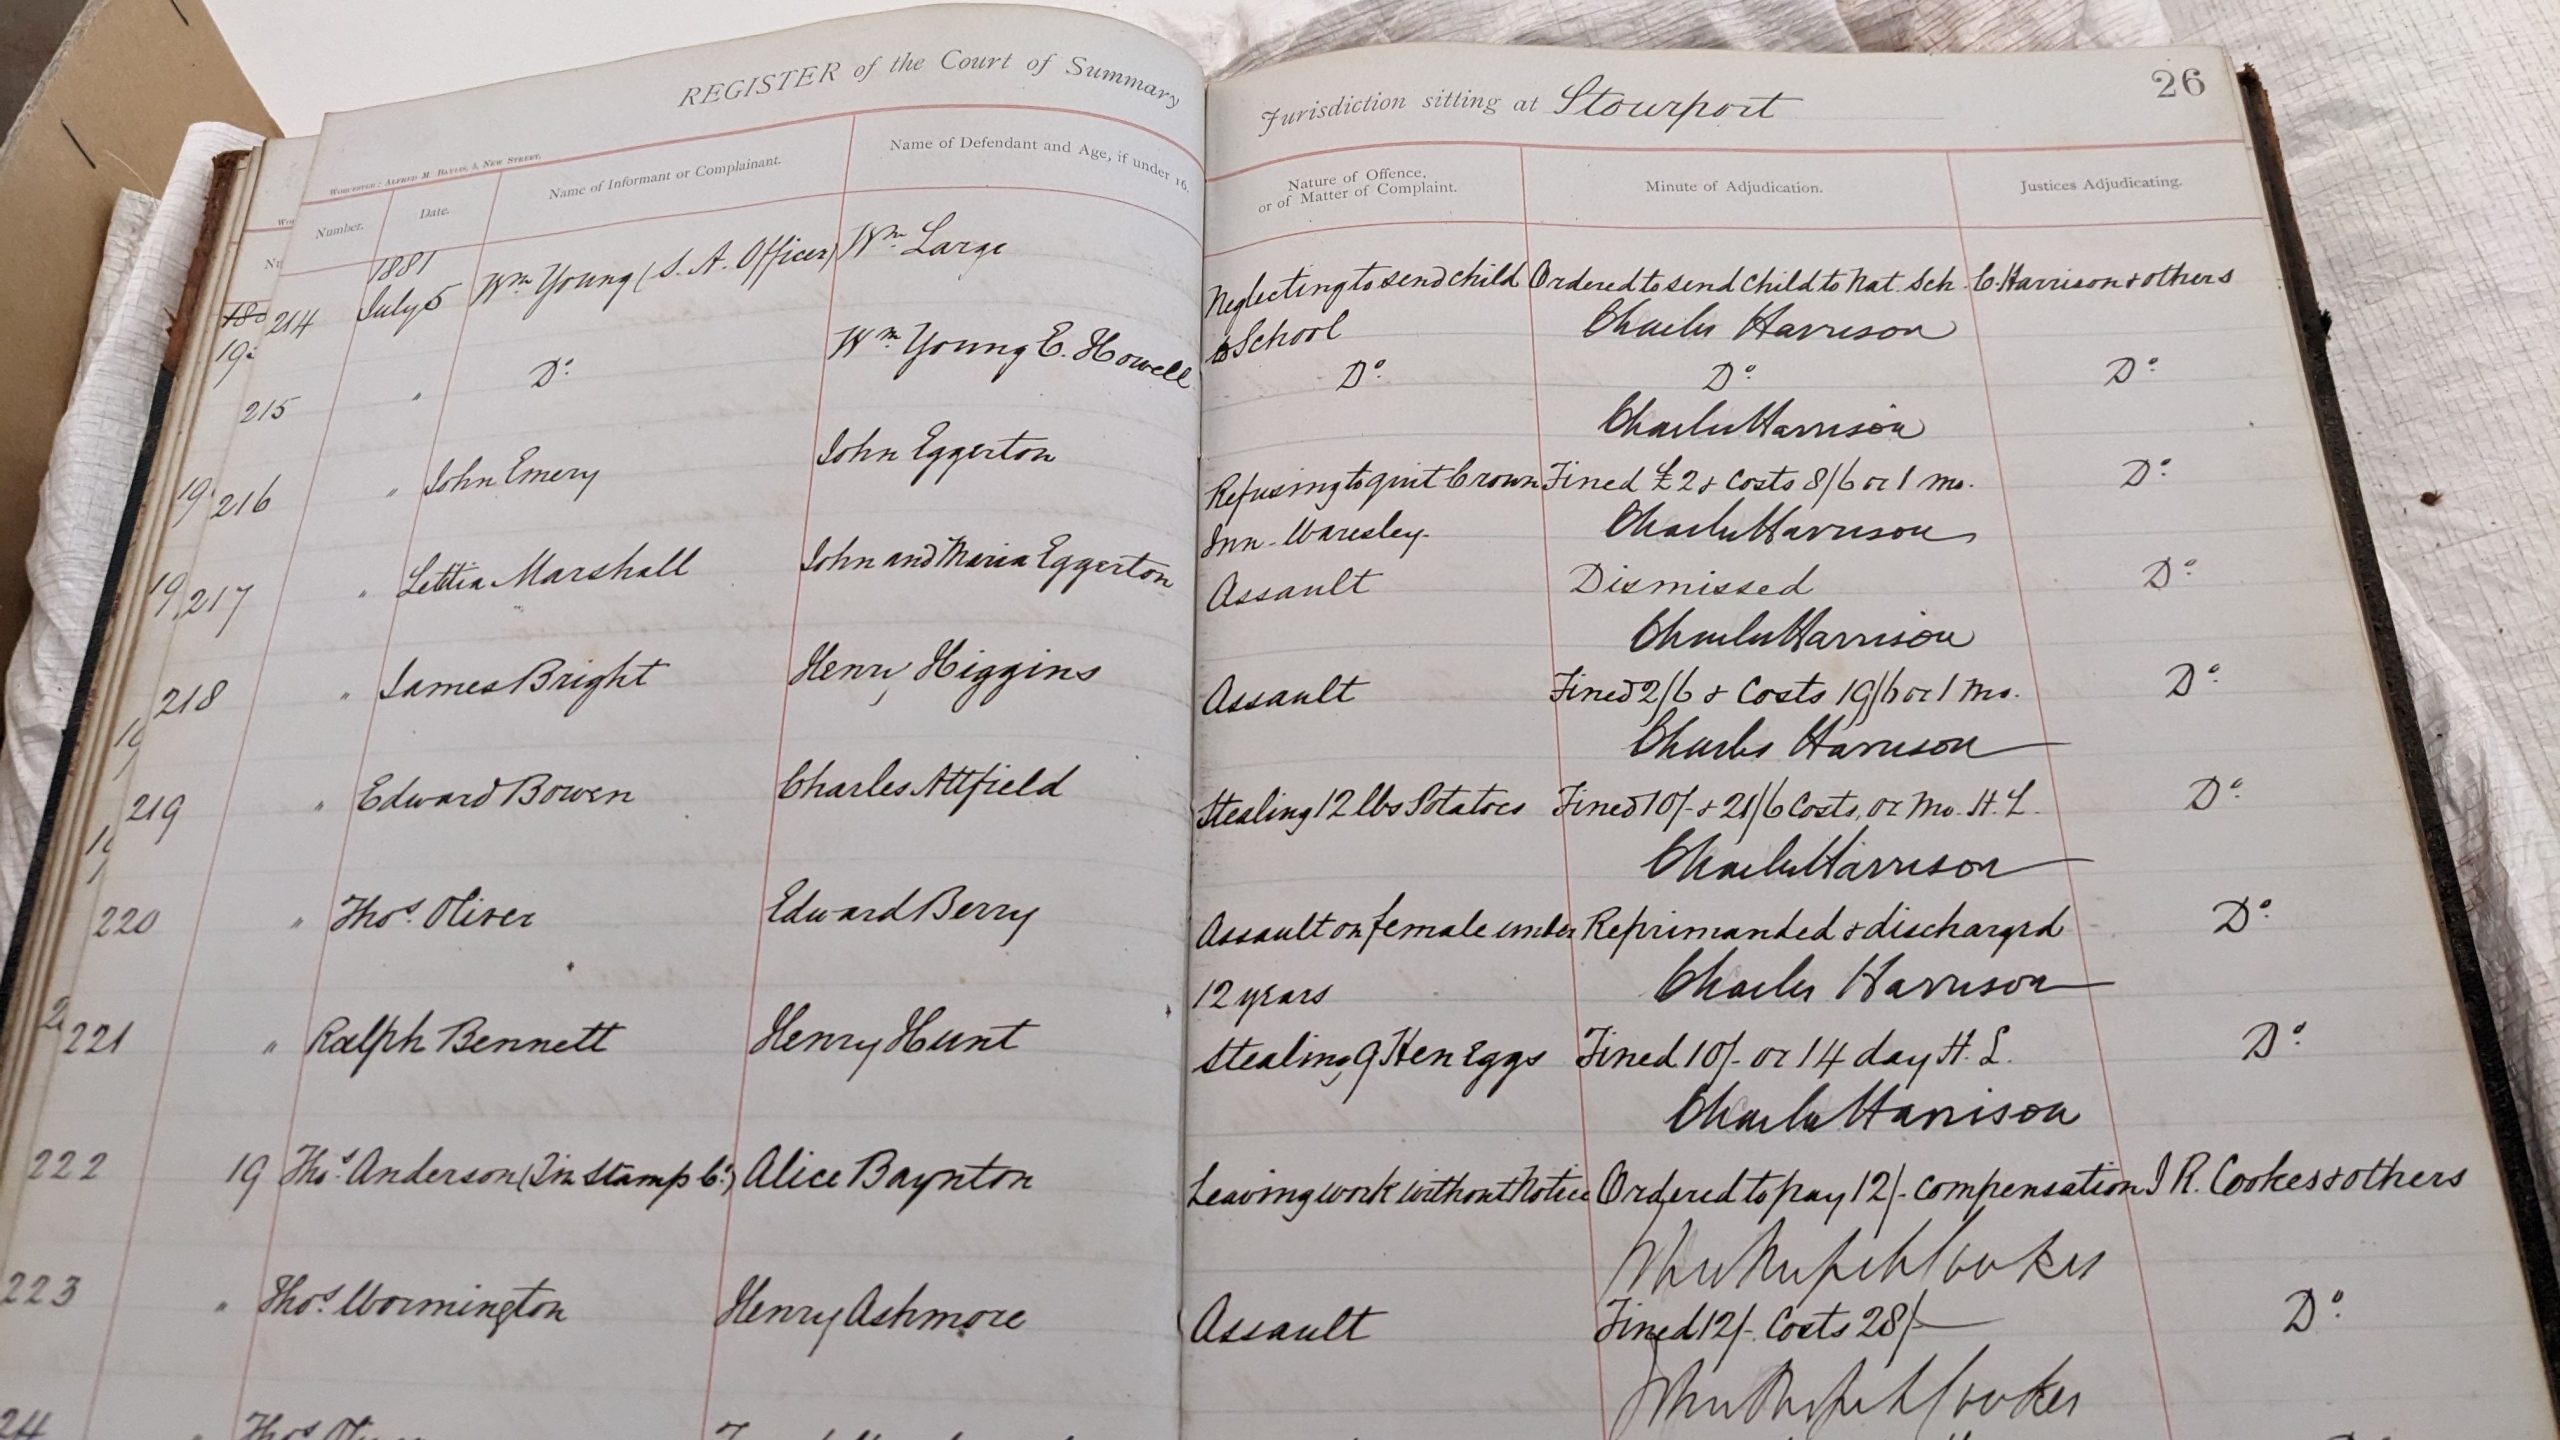 REGISTER of the Court of Summary Jurisdiction sitting at Stourport
26
WORCESTER: ALFRED M. BAYLIS, 5, NEW STREET.
Number. Date. Name of Informant or Complainant. Name of Defendant and Age, if under 16. Nature of Offence, or of Matter of Complaint. Minute of Adjudication. Justices Adjudicating.
1881
214 July 5 Wm Young (S. A. Officer) Wm Large Neglecting to send child Ordered to send child to Nat. Sch. C. Harrison & others
to School Charles Harrison
215 " Do. Wm Young E. Howell Do. Do. Do.
Charles Harrison
216 " John Emery John Eggerton Refusing to quit Crown Fined £2 & Costs 8/6 or 1 mo. Do.
Inn - Waresley. Charles Harrison
217 " Lettia Marshall John and Maria Eggerton Assault Dismissed Do.
Charles Harrison
218 " James Bright Henry Higgins Assault Fined 2/6 & Costs 19/6 or 1 mo. Do.
Charles Harrison
219 " Edward Bowen Charles Attfield Stealing 12 lbs Potatoes Fined 10/- & 21/6 Costs, or mo. H. L. Do.
Charles Harrison
220 " Thos. Oliver Edward Berry Assault on female under Reprimanded & discharged Do.
12 years Charles Harrison
221 " Ralph Bennett Henry Hunt Stealing 9 Hen Eggs Fined 10/- or 14 day H. L. Do.
Charles Harrison
222 19 Thos. Anderson (Tin Stamp Co.) Alice Baynton Leaving work without Notice Ordered to pay 12/- compensation J R. Cookes & others
Cookes
223 " Thos. Wormington Henry Ashmore Assault Fined 12/- Costs 28/- Do.
Cookes
24 Thos